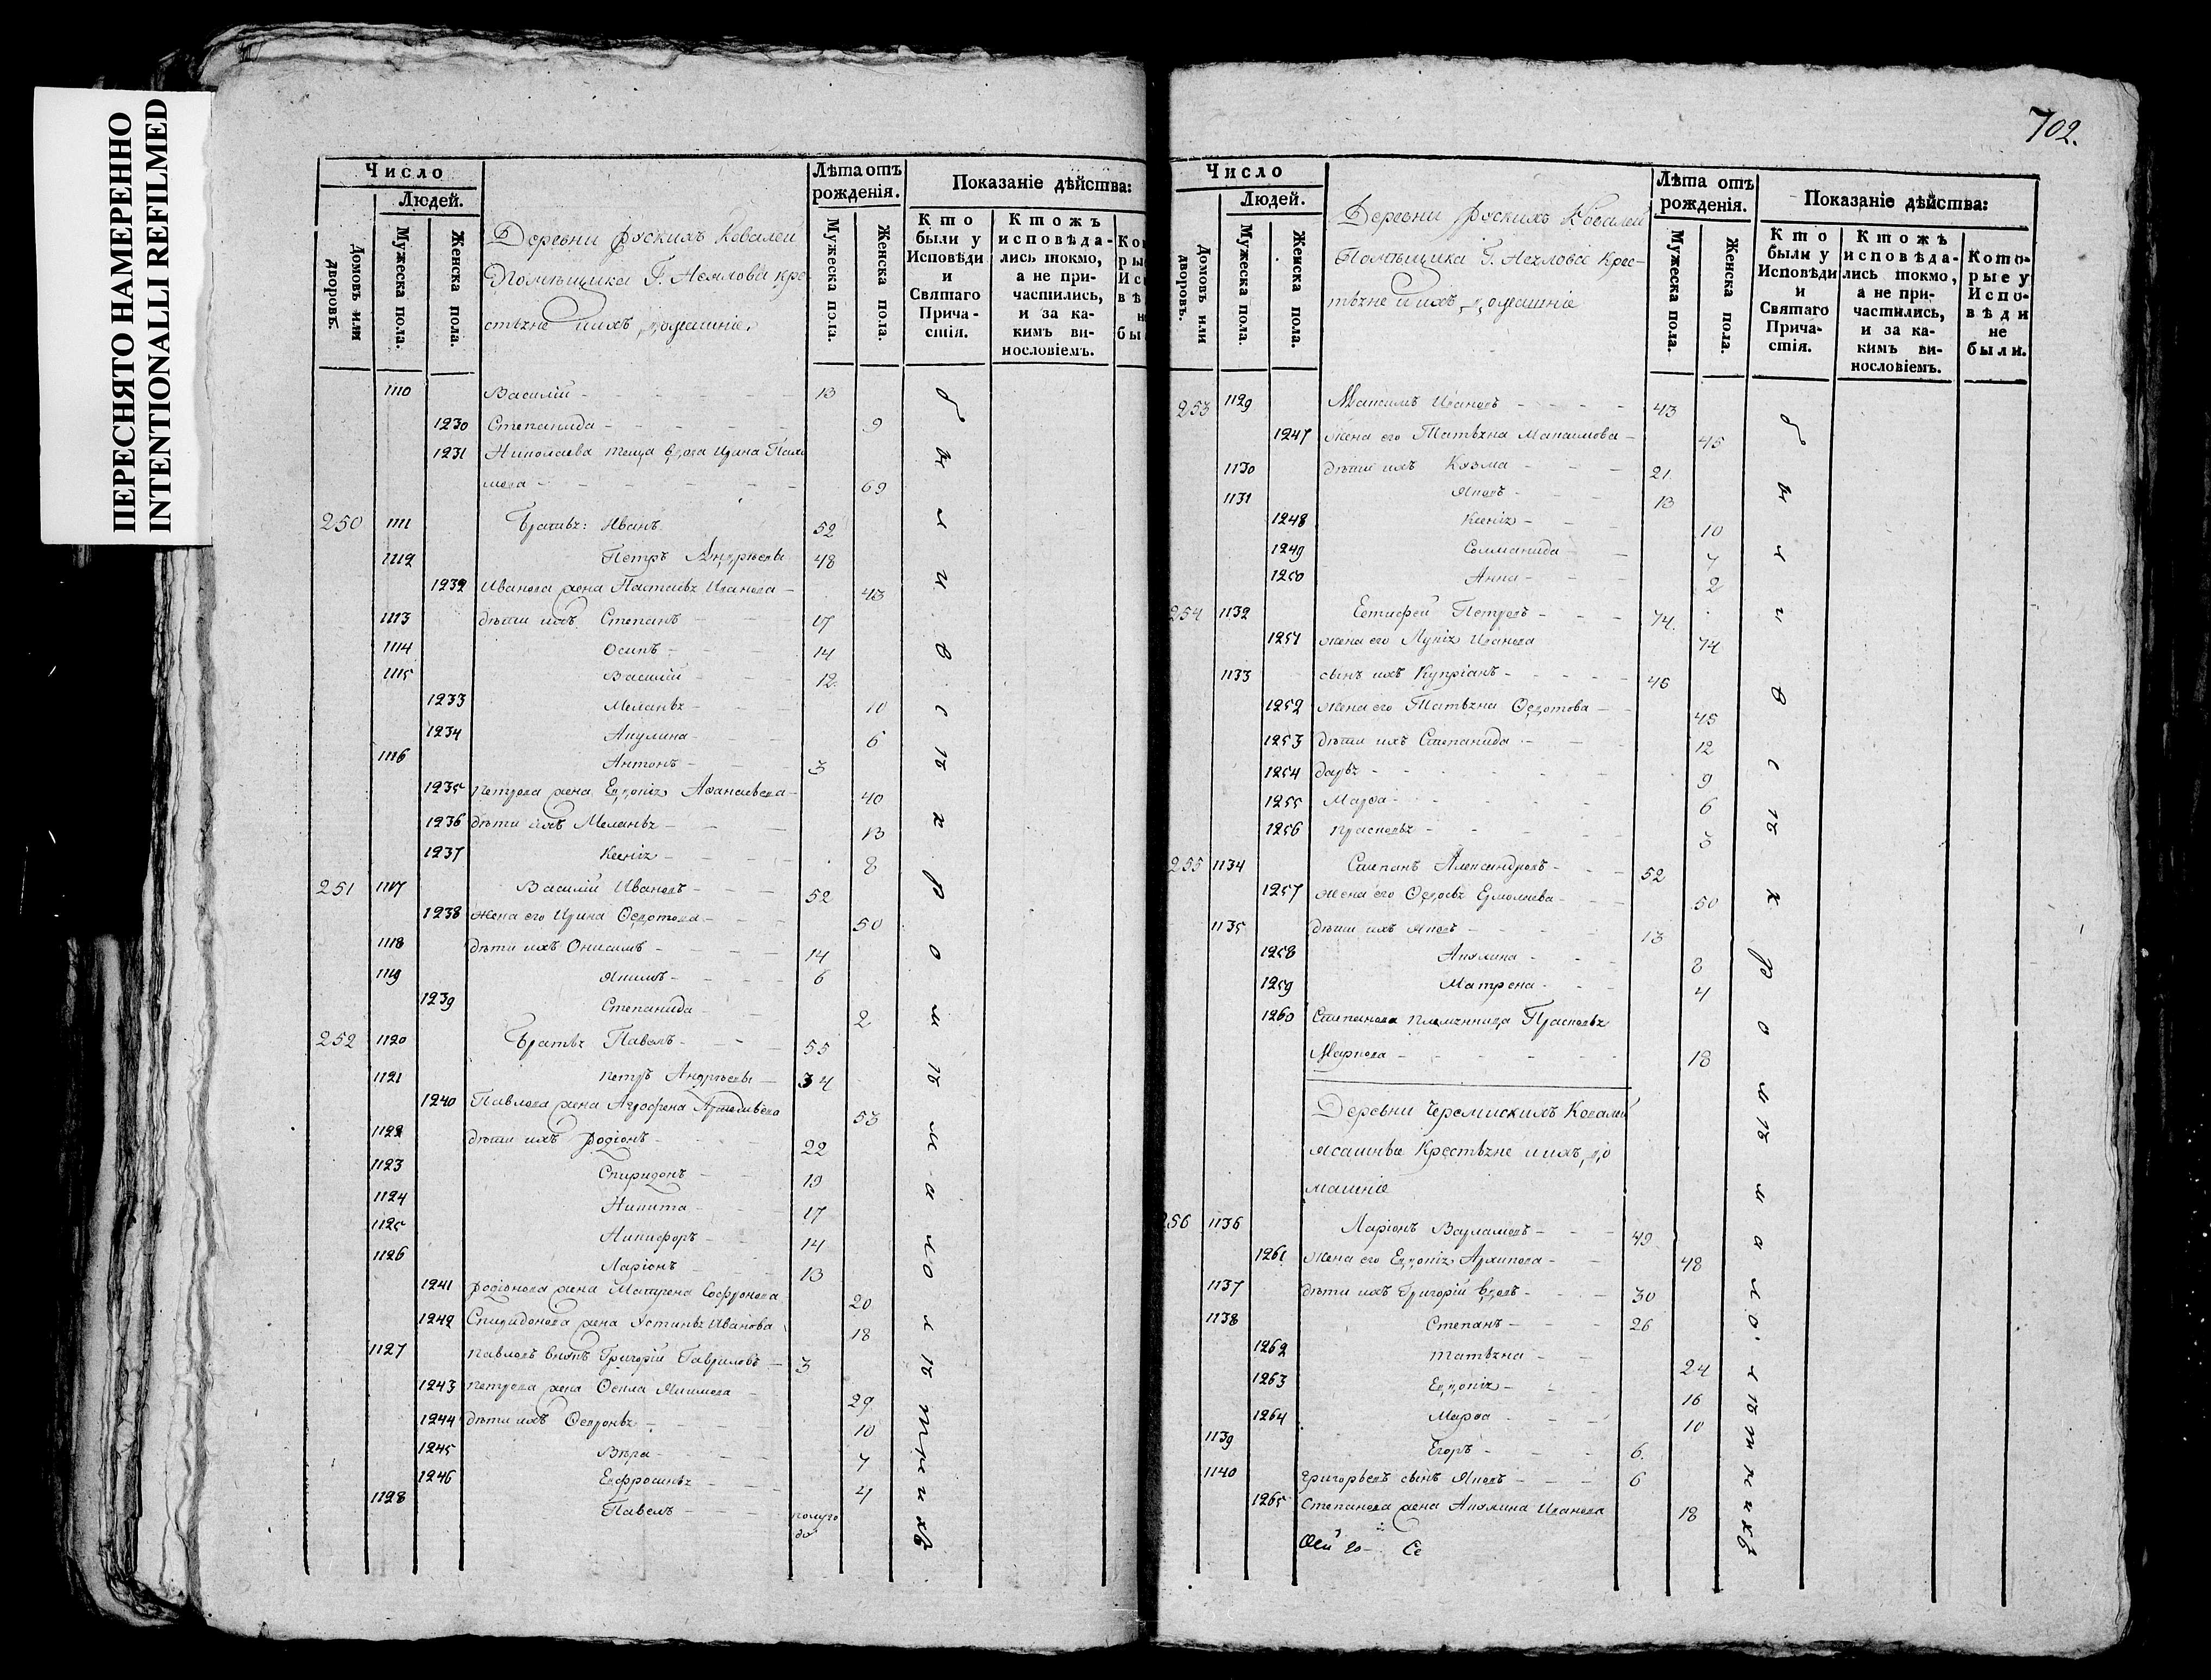 ПЕРЕСНЯТО НАМЕРЕННО
INTENTIONALLI REFILMED
702.
Число
Людей.
Домовъ или дворовъ.
Мужеска пола.
Женска пола.
Деревни Рускихъ Ковалей
Помѣщика Г. кре-
стьяне и ихъ домашніе
Лѣта отъ рожденія.
Мужеска пола.
Женска пола.
Показаніе дѣйства:
Кто были у Исповѣди и Святаго Прича-стія.
Ктожъ исповѣда-лись токмо, а не при-частились, и за ка-кимъ ви-нословіемъ.
1110 Василій 13
1230 Степанида 9
1231 теща вдова Ирина
69
250 1111 Братья: Иванъ 52
1112 Петръ Андрѣевы 48
1232 Иванова жена Наталья Иванова 43
1113 дѣти ихъ Степанъ 17
1114 Осипъ 14
1115 Василій 12
1233 Меланья 10
1234 Акулина 6
1116 Антонъ 3
1235 Петрова жена Евдокія Афанасьева 40
1236 дѣти ихъ Меланья 13
1237 Ксенія 8
251 1117 Василій Ивановъ 52
1238 жена его Ирина Ѳедотова 50
1118 дѣти ихъ Онисимъ 14
1119 Якимъ 6
1239 Степанида 2
252 1120 Братья Павелъ 55
1121 Петръ Андрѣевы 34
1240 Павлова жена Авдофена Артемьева 53
1122 дѣти ихъ Родіонъ 22
1123 Спиридонъ 19
1124 Никита 17
1125 Никифоръ 14
1126 Ларіонъ 13
1241 Родіонова жена Матрена Софронова 20
1242 Спиридонова жена Устинья Иванова 18
1127 Павловъ внукъ Григорій Гавриловъ 3
1243 Петрова жена Ѳекла Якимова 29
1244 дѣти ихъ Ѳевронья 10
1245 Вѣра 7
1246 Ефросинья 4
1128 Павелъ полуго
да
Число
Людей.
Домовъ или дворовъ.
Мужеска пола.
Женска пола.
Деревни Рускихъ Ковалей
Помѣщика Г. Крес-
тьяне и ихъ домашніе
Лѣта отъ рожденія.
Мужеска пола.
Женска пола.
Показаніе дѣйства:
Кто были у Исповѣди и Святаго Прича-стія.
Ктожъ исповѣда-лись токмо, а не при-частились, и за ка-кимъ ви-нословіемъ.
Кото-рые у Испо-вѣди не были.
253 1129 Максимъ Ивановъ 43
1247 жена его Татьяна Максимова 45
1130 дѣти ихъ Козма 21
1131 Яковъ 13
1248 Ксенія 10
1249 Соломанида 7
1250 Анна 2
254 1132 Евтифей Петровъ 74
1251 жена его Лукія Иванова 74
1133 сынъ ихъ Купріанъ 46
1252 жена его Татьяна Ѳедотова 45
1253 дѣти ихъ Степанида 12
1254 Дарья 9
1255 Марѳа 6
1256 Прасковья 3
255 1134 Степанъ Александровъ 52
1257 жена его Ѳедосья Ермолаева 50
1135 дѣти ихъ Яковъ 13
1258 Акулина 8
1259 Матрена 4
1260 Степанова племянница Прасковья
Маркова 18
Деревни Черемискихъ Ковалей
ясашные Крестьяне и ихъ до
машніе
256 1136 Ларіонъ Варламовъ 49
1261 жена его Евдокія Архипова 48
1137 дѣти ихъ Григорій вдовъ 30
1138 Степанъ 26
1262 Татьяна 24
1263 Евдокія 16
1264 Марѳа 10
1139 Егоръ 6
1140 Григорьевъ сынъ Яковъ 6
1265 Степанова жена Акулина Иванова 18